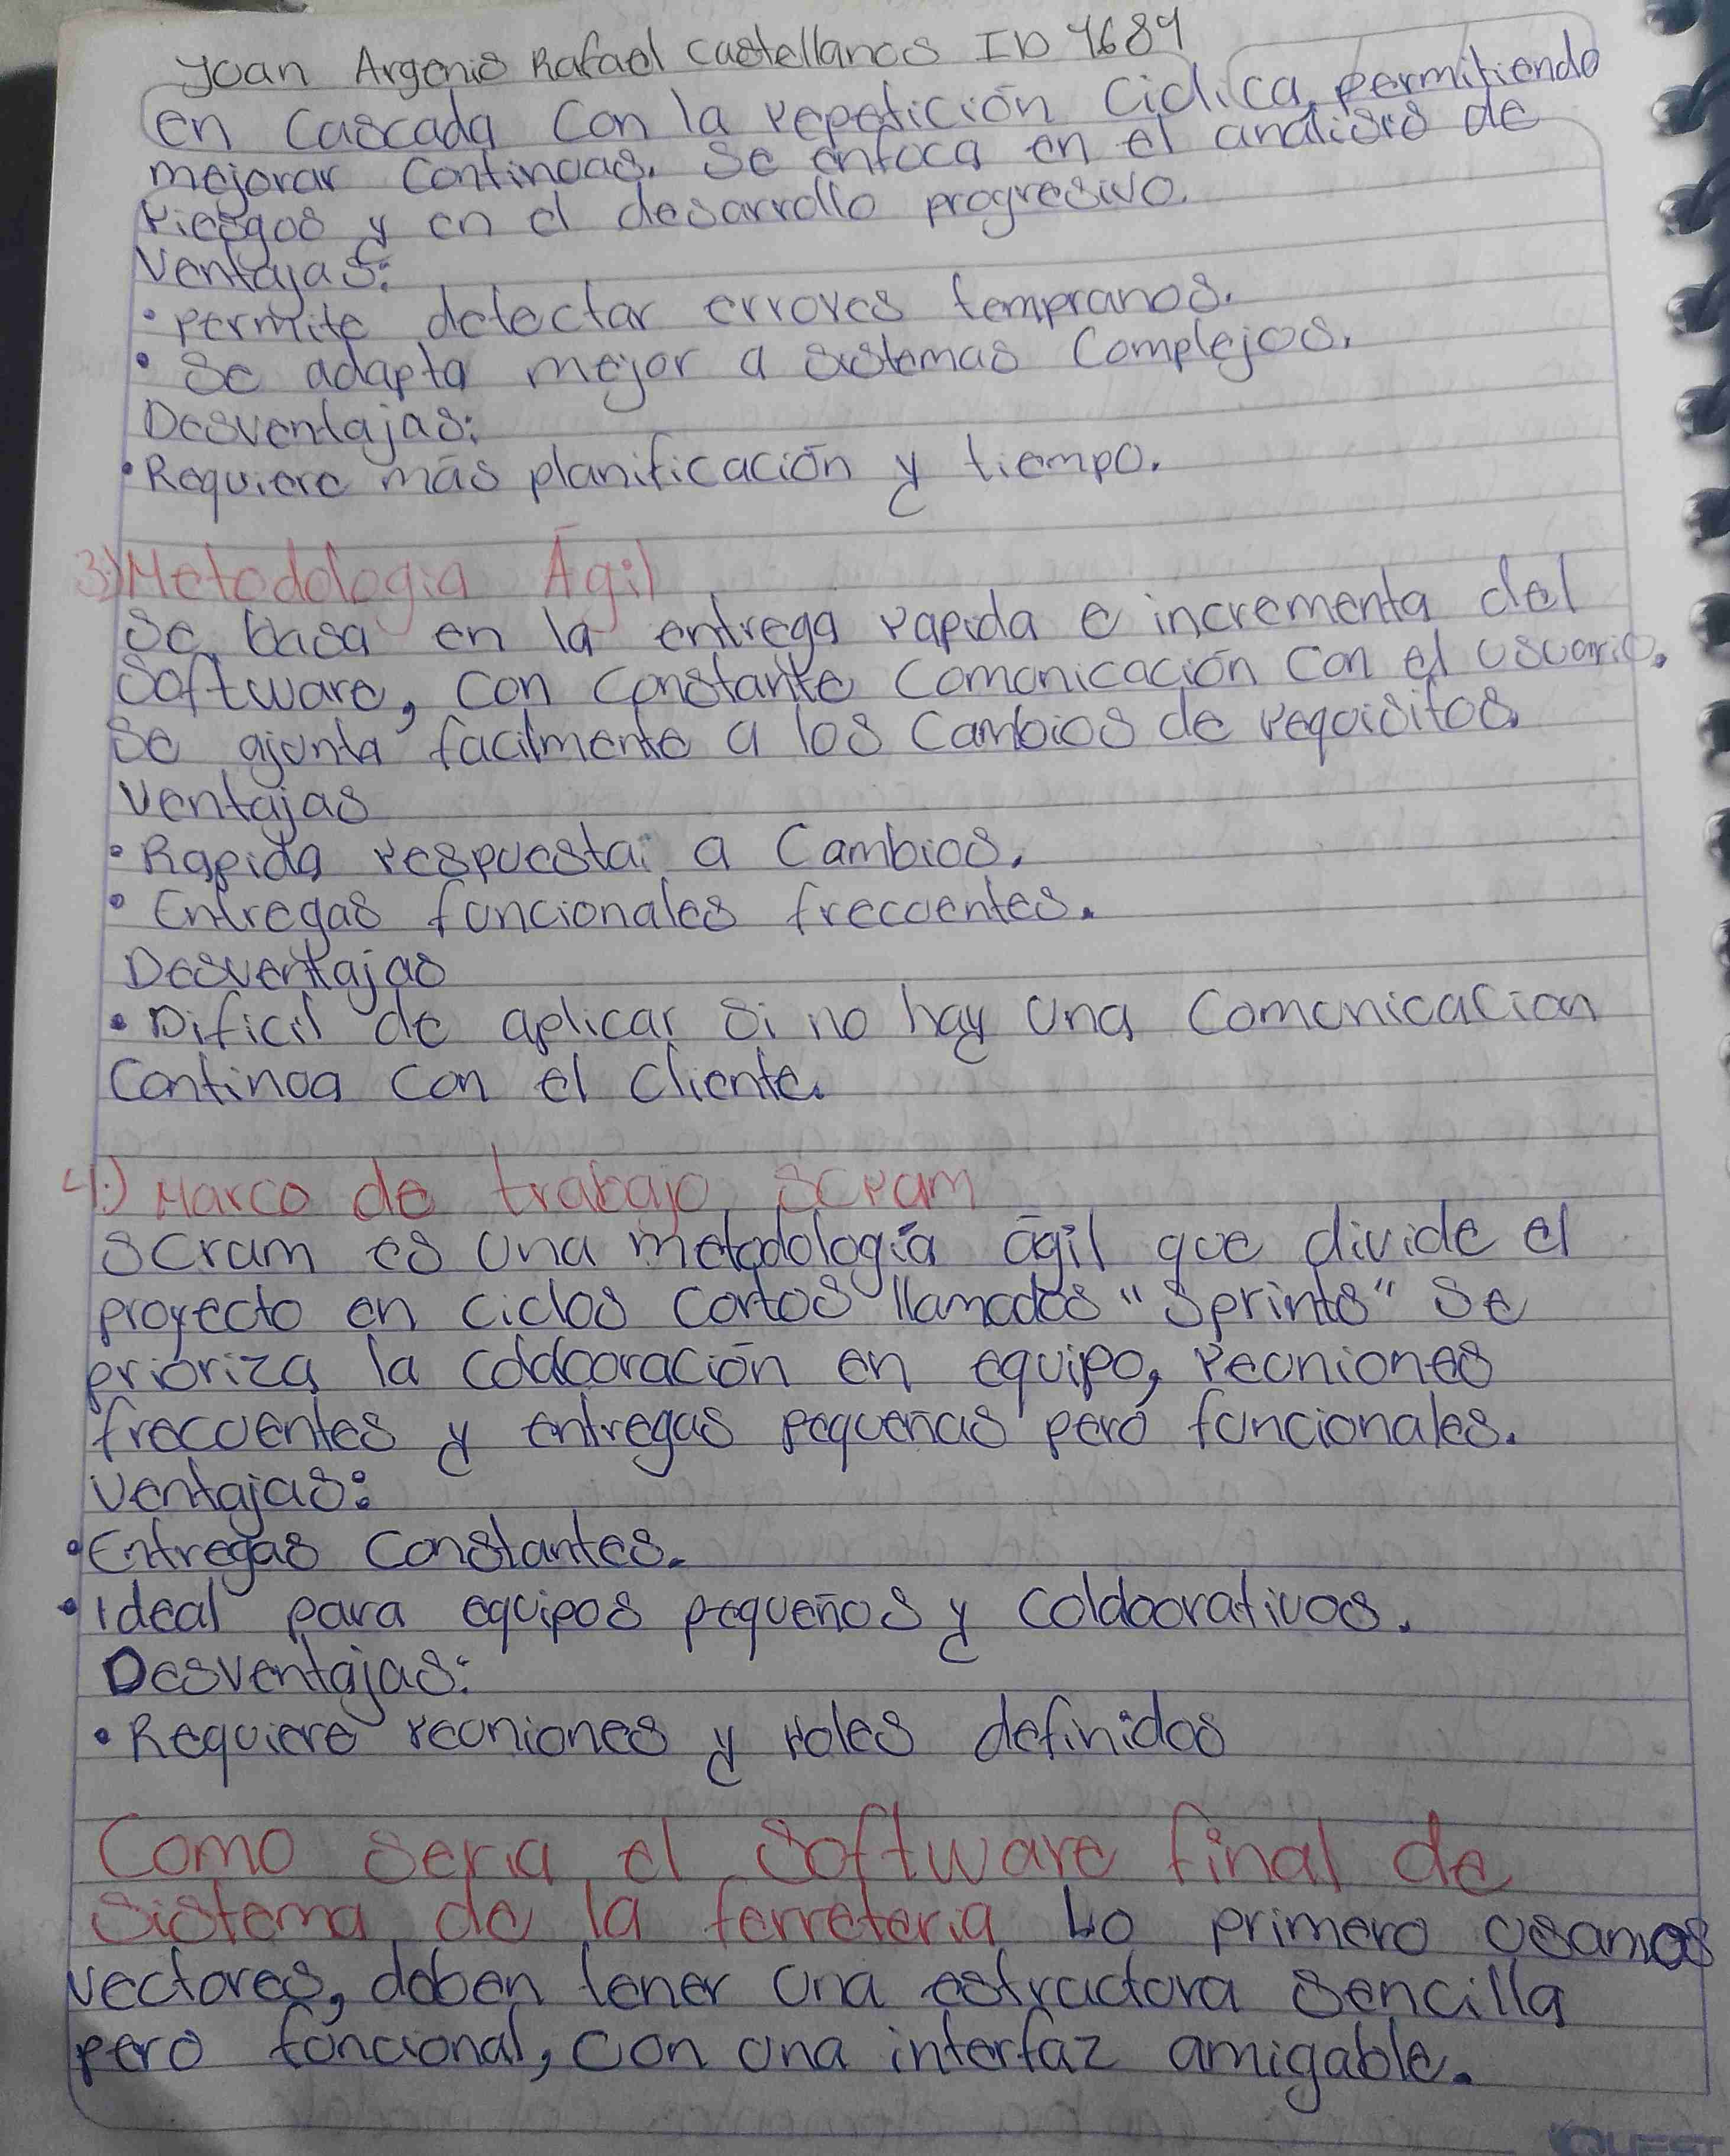 Joan Argenis Rafael Castellanos ID 4689
en Cascada Con la repetición Ciclica, permitiendo
mejorar Continuas. Se enfoca en el analisis de
riesgos y en el desarrollo progresivo.
Ventajas:
• permite detectar errores tempranos.
• Se adapta mejor a sistemas Complejos.
Desventajas:
• Requiere más planificación y tiempo.
3.) Metodologia Ágil
Se basa en la entrega rapida e incrementa del
Software, con constante Comunicación Con el usuario.
Se ajunta facilmente a los Cambios de requisitos.
Ventajas
• Rapida respuesta a Cambios.
• Entregas funcionales frecuentes.
Desventajas
• Dificil de aplicar si no hay una Comunicacion
Continua con el cliente.
4.) Marco de trabajo Scrum
Scrum es una metodologia ágil que divide el
proyecto en ciclos cortos llamados "Sprints" Se
prioriza la colaboración en equipo, reuniones
frecuentes y entregas pequeñas pero funcionales.
Ventajas:
• Entregas Constantes.
• Ideal para equipos pequeños y colaborativos.
Desventajas:
• Requiere reuniones y roles definidos
Como seria el software final de
Sistema de la ferreteria Lo primero usamos
vectores, deben tener una estructura sencilla
pero funcional, con una interfaz amigable.